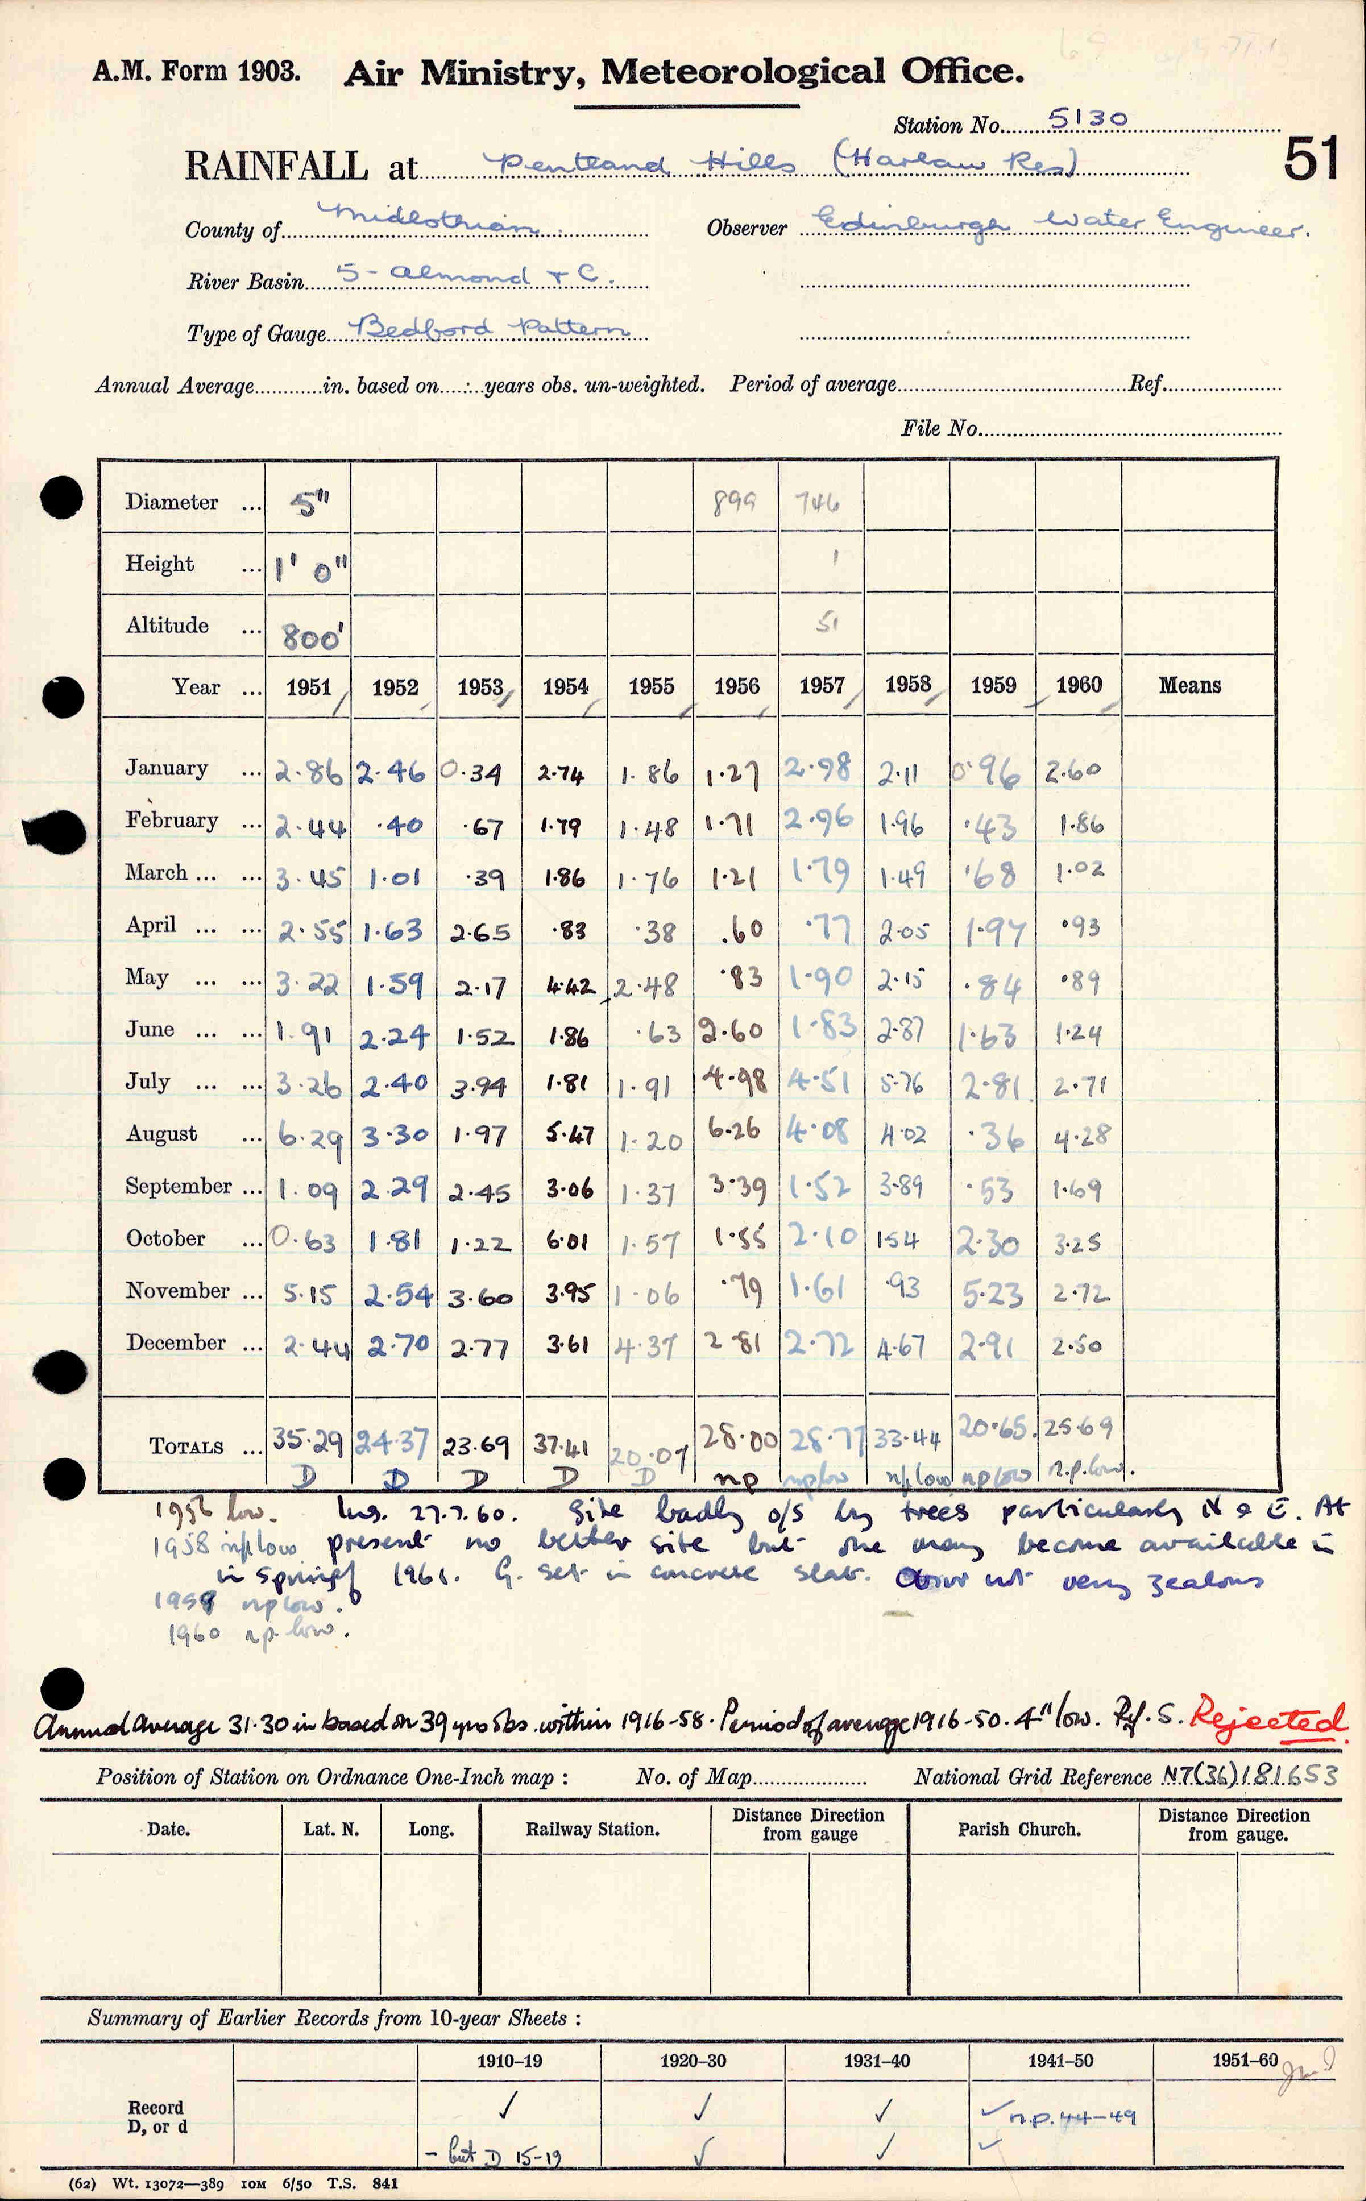 A.M. Form 1903. Air Ministry, Meteorological Office.
Station No. 5130
51
RAINFALL at Pentland Hills (Harlaw Res)
County of Midlothian. Observer Edinburgh Water Engineer.
River Basin 5 - Almond & C.
Type of Gauge Bedford Pattern
Annual Average............in. based on......years obs. un-weighted. Period of average............ Ref.............
File No.............
Diameter ... 5" 899 746
Height ... 1' 0" 1
Altitude ... 800' 51
Year ... 1951 1952 1953 1954 1955 1956 1957 1958 1959 1960 Means
January ... 2.86 2.46 0.34 2.74 1.86 1.27 2.98 2.11 0.96 2.60
February ... 2.44 .40 .67 1.79 1.48 1.71 2.96 1.96 .43 1.86
March ... ... 3.45 1.01 .39 1.86 1.76 1.21 1.79 1.49 .68 1.02
April ... ... 2.55 1.63 2.65 .83 .38 .60 .77 2.05 1.97 .93
May ... ... 3.22 1.59 2.17 4.42 2.48 .83 1.90 2.15 .84 .89
June ... ... 1.91 2.24 1.52 1.86 .63 2.60 1.83 2.87 1.63 1.24
July ... ... 3.26 2.40 3.94 1.81 1.91 4.98 4.51 5.76 2.81 2.71
August ... 6.29 3.30 1.97 5.47 1.20 6.26 4.08 4.02 .36 4.28
September ... 1.09 2.29 2.45 3.06 1.37 3.39 1.52 3.89 .53 1.69
October ... 0.63 1.81 1.22 6.01 1.57 1.55 2.10 1.54 2.30 3.25
November ... 5.15 2.54 3.60 3.95 1.06 .79 1.61 .93 5.23 2.72
December ... 2.44 2.70 2.77 3.61 4.37 2.81 2.72 4.67 2.91 2.50
TOTALS ... 35.29 24.37 23.69 37.41 20.07 28.00 28.77 33.44 20.65 25.69
D D D D D np np low np low np low n.p. low.
1956 low. Ins. 27.7.60. Site badly o/s by trees particularly N & E. At
1958 np low present no better site but one may become available in
in spring of 1961. G. set in concrete slab. Obsvr not very zealous
1959 np low.
1960 np low.
Annual Average 31.30 in based on 39 yrs obs. within 1916-58. Period of average 1916-50. 4" low. Ref. S. Rejected.
Position of Station on Ordnance One-Inch map : No. of Map............ National Grid Reference NT(36)181653
Date. Lat. N. Long. Railway Station. Distance Direction from gauge Parish Church. Distance Direction from gauge.
Summary of Earlier Records from 10-year Sheets :
1910-19 1920-30 1931-40 1941-50 1951-60
Record ✓ ✓ ✓ ✓ n.p. 44-49
D, or d - but D 15-19 ✓ ✓ ✓
(62) Wt. 13072—389 10M 6/50 T.S. 841